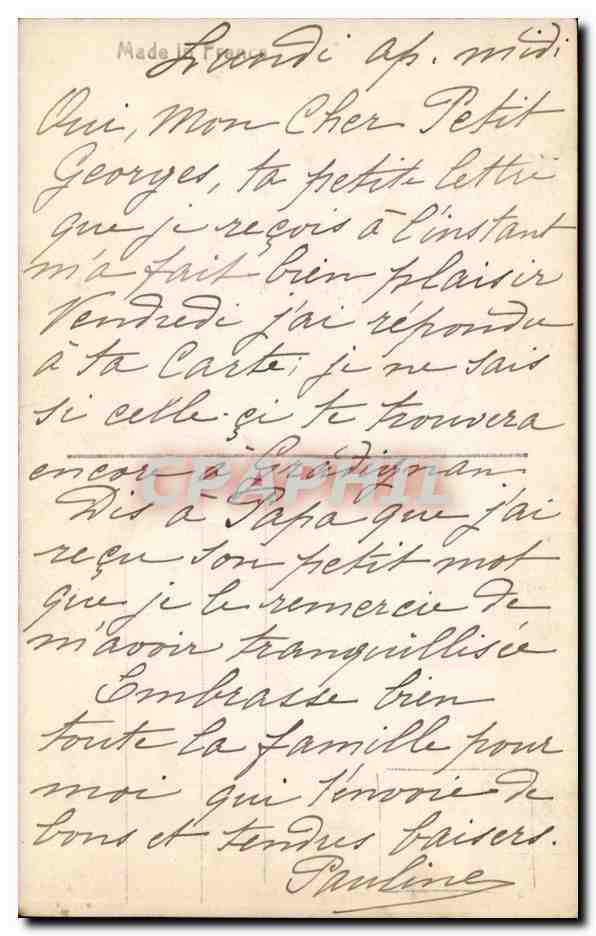 Made in France
Lundi ap. midi
Oui, mon Cher Petit
Georges, ta petite lettre
que je reçois à l'instant
m'a fait bien plaisir
Vendredi j'ai répondu
à ta Carte; je ne sais
si celle-çi te trouvera
encore à Gradignan
CPAPHIL
Dis à Papa que j'ai
reçu son petit mot
que je le remercie de
m'avoir tranquillisée
Embrasse bien
toute la famille pour
moi qui t'envoie de
bons et tendres baisers.
Pauline